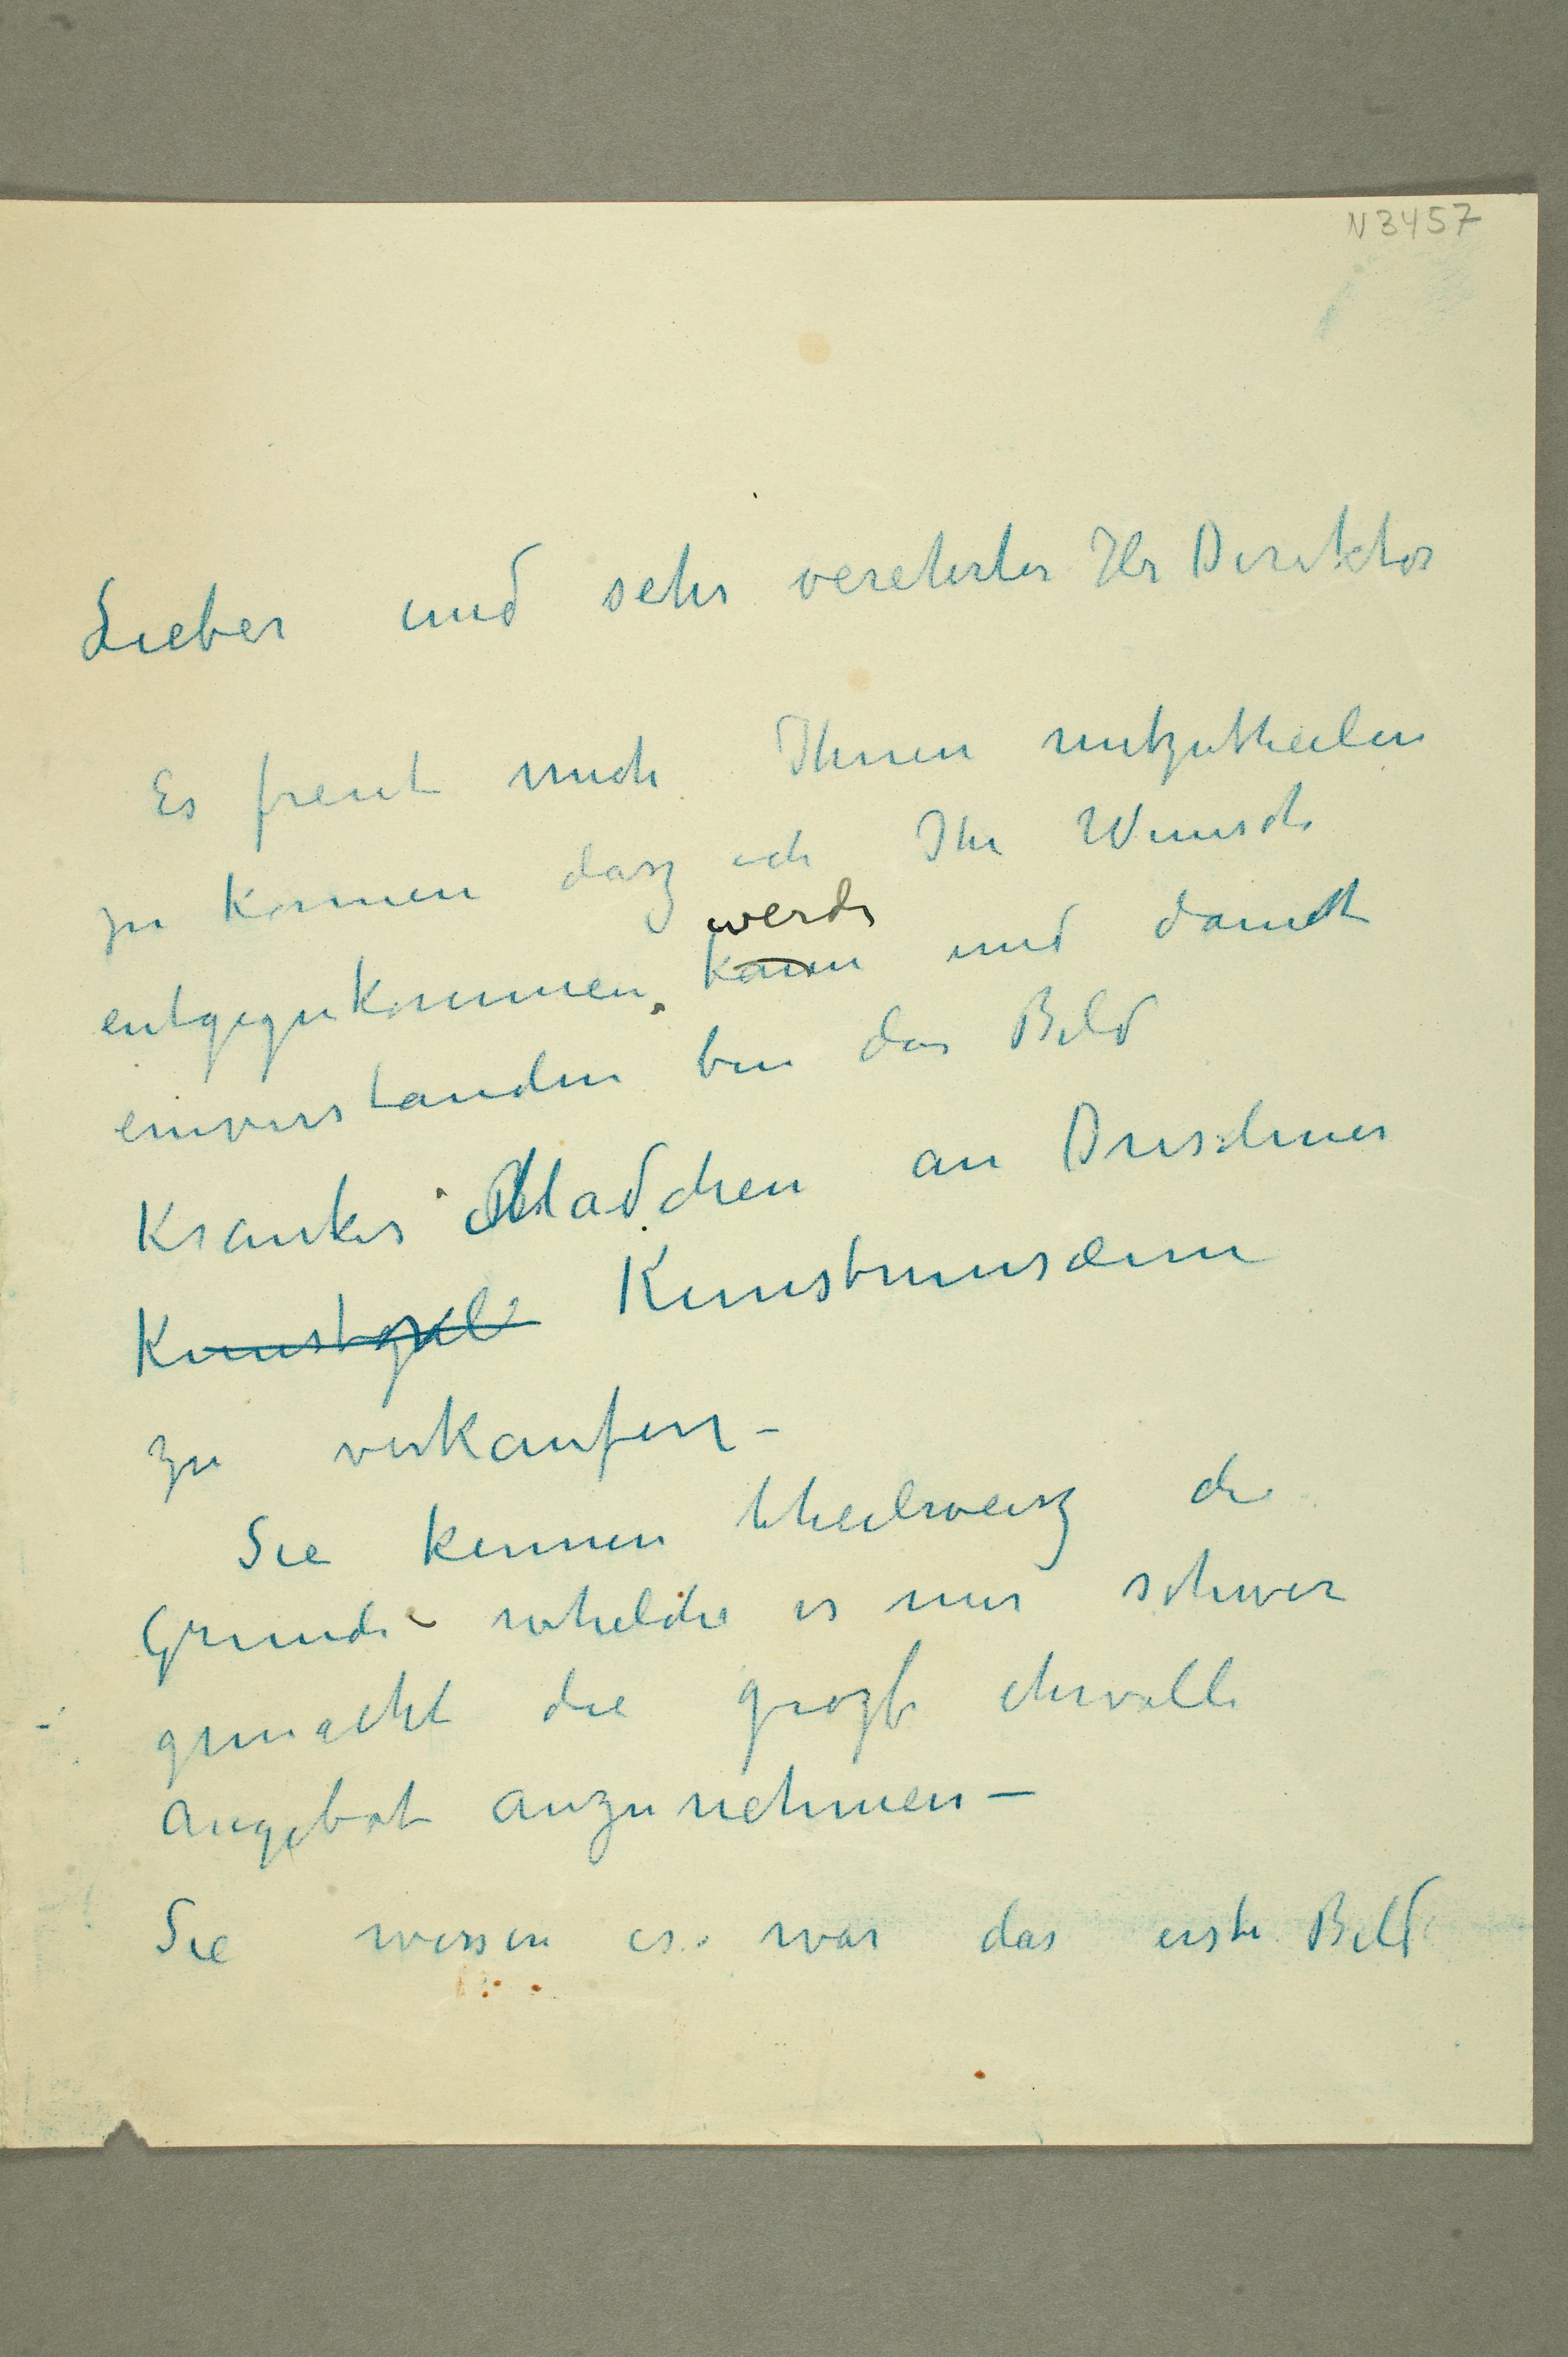 N 3457
Lieber und sehr verehrter Hr Direktor
Es freut mich Ihnen mitzutheilen
zu können dasz ich Ihr Wunsch
werde
entgegenkommen kann und damit
einverstanden bin das Bild
Krankes Mädchen an Dresdener
Kunstgal Kunstmuseum
zu verkaufen –
Sie kennen theilweisz die
Grunde whelche es mir schwer
gemacht die groszte ehrvolle
Angebot anzunehmen –
Sie wissen es war das erste Bild